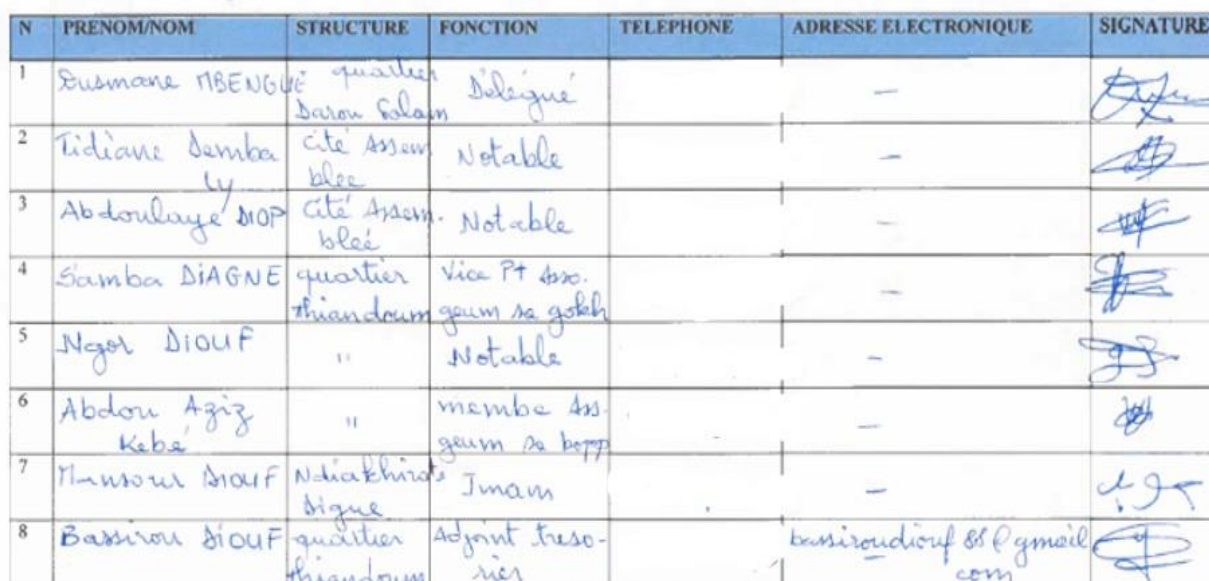 N PRENOM/NOM STRUCTURE FONCTION TELEPHONE ADRESSE ELECTRONIQUE SIGNATURE
1 Ousmane MBENGUE quartier Darou Salam Délégué —
2 Tidiane Demba Ly Cité Assem blee Notable —
3 Abdoulaye DIOP Cité Assem. bleé Notable —
4 Samba DIAGNE quartier thiandoum Vice Pt Asso. geum sa gokh —
5 Ngor DIOUF " Notable —
6 Abdou Aziz Kebé " membe Ass. geum sa bopp —
7 Mansour DIOUF Ndiakhirate digue Imam —
8 Bassirou DIOUF quartier thiandoum Adjoint treso- rier bassiroudiouf 88 @ gmail com